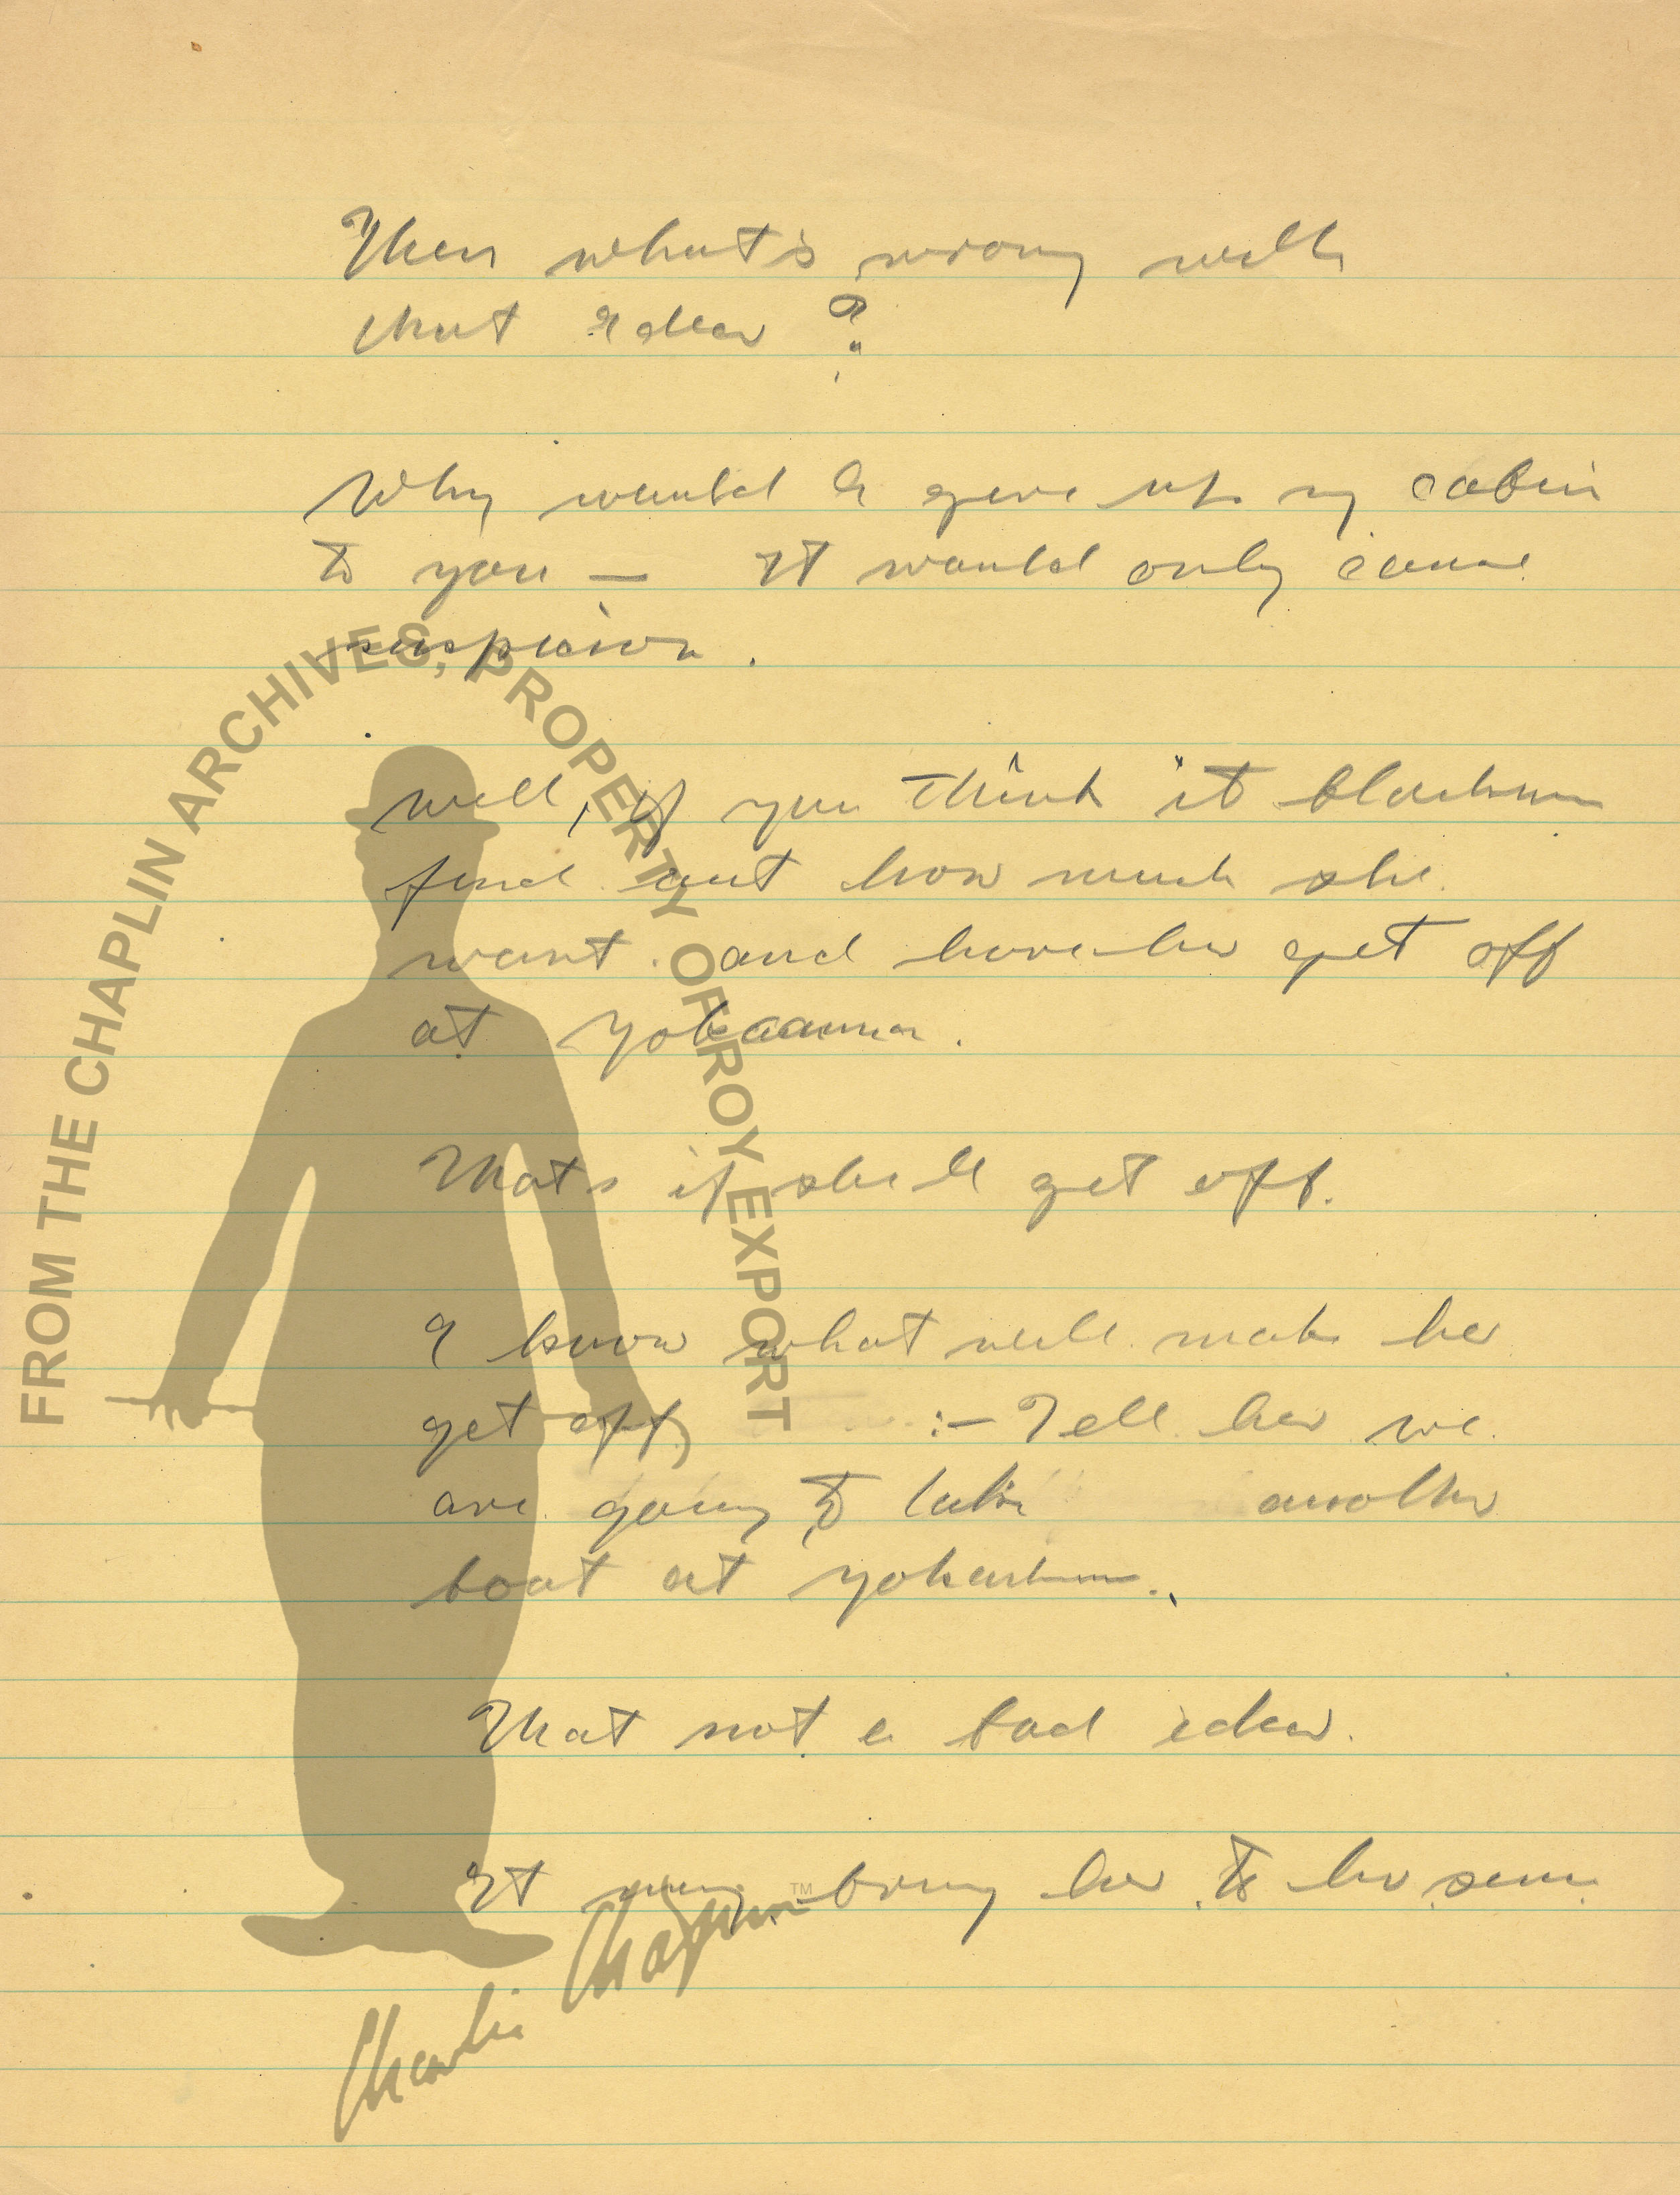 Then what's wrong with
that Idea ?
Why would I give up my cabin
to you — It would only cause
suspicion .
well, if you think it blackm
find out how much she
want . and have her get off
at Yokaama .
Thats if she ll get off.
I know what will make her
get off :- Tell her we
are going to take another
boat at Yokahama.
That not a bad idea.
It may bring her to her sens
FROM THE CHAPLIN ARCHIVES, PROPERTY OF ROY EXPORT
Charlie Chaplin ™